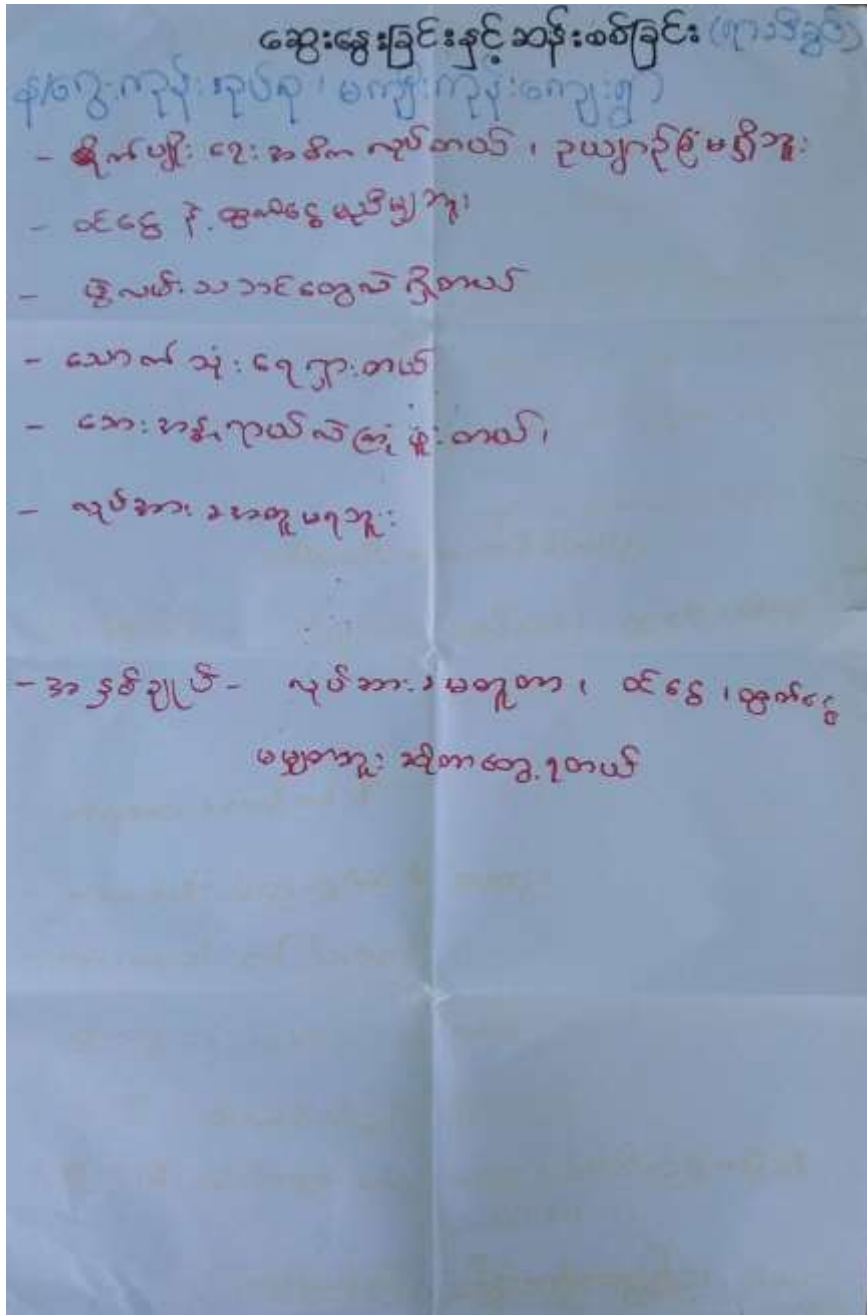 ဆွေးနွေးခြင်းနှင့် ဆန်းစစ်ခြင်း (ရာသီခွင်)
န/ဂွေးကုန်းအုပ်စု၊ မကျီးကုန်းကျေးရွာ
- စိုက်ပျိုးရေးအဓိက လုပ်တယ်၊ ဥယျာဉ်ခြံမရှိဘူး
- ဝင်ငွေ နဲ့ ထွက်ငွေ မညီမျှဘူး၊
- ပွဲလမ်းသဘင်တွေလဲ ရှိတယ်
- သောက်သုံးရေရှားတယ်
- ဘေးအန္တရာယ်လဲကြုံဖူးတယ်၊
- လုပ်အားခအတူမရဘူး
- အနှစ်ချုပ် - လုပ်အားခမတူတာ၊ ဝင်ငွေ၊ ထွက်ငွေ
မမျှတာဘူး ဆိုတာတွေ့ရတယ်